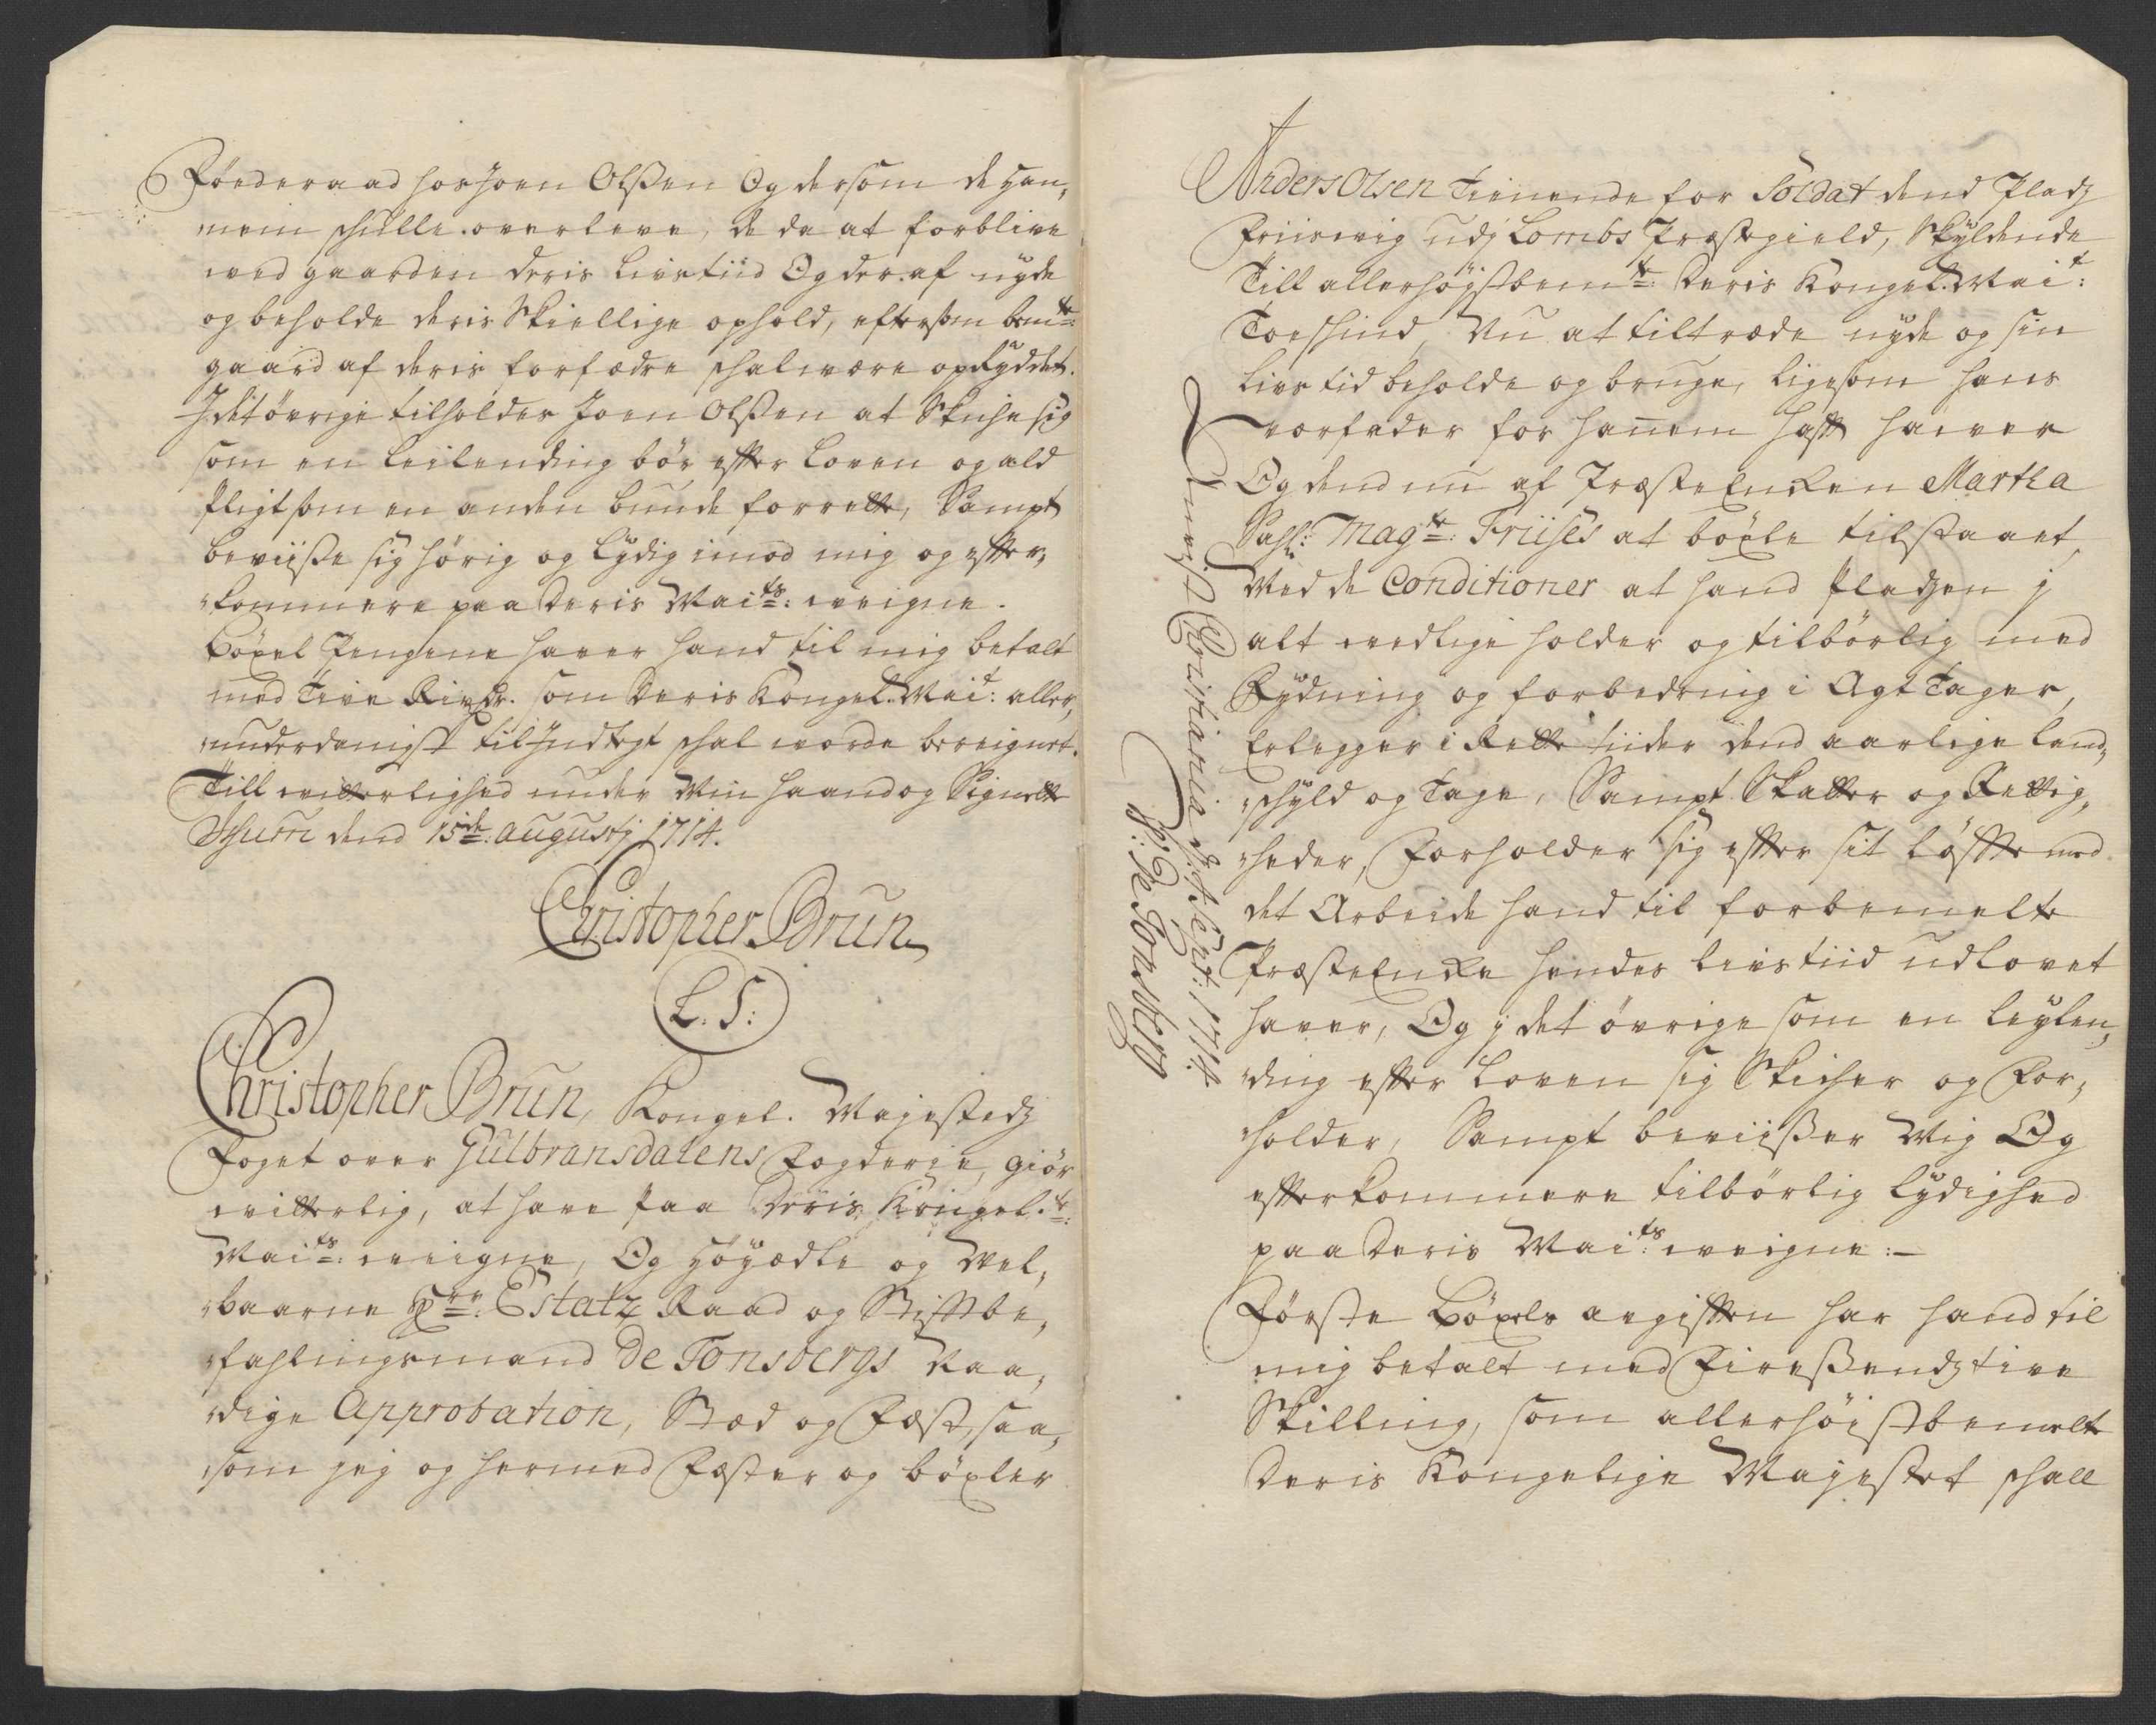 Föederaad hos Joen Olßen Og dersom de han,
nem schulle overleve, de da at forblive
ved gaarden deris Livstiid Og der af nyde
og beholde deris Skiellige ophold, eftersom bemte:
gaard af deris forfædre schal være opRyddet.
J det övrige tilholdes Joen Olßen at Skiche sig
som en Leilending bör efter Loven og ald
Pligt som en anden bunde forrette, Sampt
beviiße sig hörig og lydig imod mig og effter,
kommere paa Deris Maits: veigne.
Böxel Pengene haver hand til mig betalt
med Tive Rixdr. som Deris Kongel. Mait: aller,
underdanigst til Indtegt schal vorde bereignet.
Till vitterlighed under Min haand og Signette
Thurn dend 15de: Augustj 1714.
Christopher Brun
L. S:
Christopher Brun, Kongel. Majestedz
Foget over Gulbransdalens Fogderie, giör
vitterlig, at have paa Deris Kongel.te:
Maits: veigne, Og Höyædle og Vel,
baarne Hrr: Estatz Raad og Stiftbe,
fahlingsmand De Tonsbergs Naa,
dige Approbation, Stæd og Fæst, saa,
som jeg og hermed Fæster og böxler
Anders Olsen Tienende for Soldat dend Pladz
Friisvig udj Lombs Præstegield, Skyldende
Till allerhögstbemte: Deris Kongel. Mait:
Toe skind, Nu at tiltræde nyde og sin
Livs tid beholde og bruge, ligesom hans
vorfader for hanem hafft haever
Og dend nu af Præste Encken Martha
Sahl: Magtr: Friises at böxle tilstaaet,
Med de Conditioner at hand Pladzen j
alt vedlige holder og tilbörlig med
Rydning og forbedring i Agt Tager,
Erlegger i Rette tiider dend aarlige land,
schyld og Tage, Sampt Skatter og Rettig,
heder, Forholder sig effter sit löffte med
det Arbeide hand til forbemelte
Præste Encke hendes livs tiid udlovet
haver, Og j det övrige som en leylen,
ding effter Loven sig Skicher og For,
holder, Sampt beviißer Mig Og
effterkommere tilbörlig lydighed
paa Deris Maits: veigne:-
Förste Böxels avgifften har hand til
mig betalt med Fireßendztive
Skilling, som allerhöistbemelte
Deris Kongelige Majestet schall
Christiania d: Sept: 1714.
W: De Tonsberg